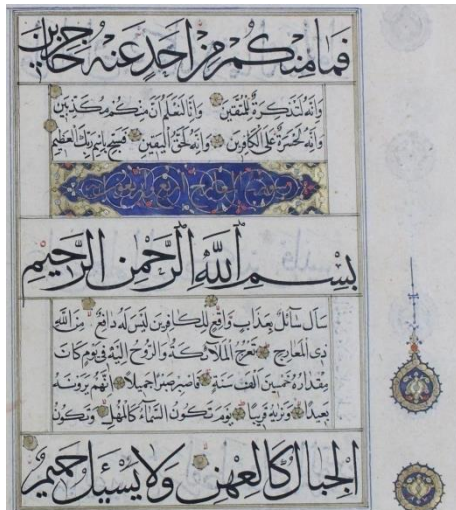 فَمَا مِنْكُمْ مِنْ اَحَدٍ عَنْهُ حَاجِزِينَ
وَاِنَّهُ لَتَذْكِرَةٌ لِلْمُتَّقِينَ وَاِنَّا لَنَعْلَمُ اَنَّ مِنْكُمْ مُكَذِّبِينَ
وَاِنَّهُ لَحَسْرَةٌ عَلَى الْكَافِرِينَ وَاِنَّهُ لَحَقُّ الْيَقِينِ فَسَبِّحْ بِاسْمِ رَبِّكَ الْعَظِيمِ
بِسْمِ اللَّهِ الرَّحْمٰنِ الرَّحِيمِ
سَاَلَ سَائِلٌ بِعَذَابٍ وَاقِعٍ لِلْكَافِرِينَ لَيْسَ لَهُ دَافِعٌ مِنَ اللَّهِ
ذِي الْمَعَارِجِ تَعْرُجُ الْمَلَائِكَةُ وَالرُّوحُ اِلَيْهِ فِي يَوْمٍ كَانَ
مِقْدَارُهُ خَمْسِينَ اَلْفَ سَنَةٍ فَاصْبِرْ صَبْرًا جَمِيلًا اِنَّهُمْ يَرَوْنَهُ
بَعِيدًا وَنَرٰيهُ قَرِيبًا يَوْمَ تَكُونُ السَّمَاءُ كَالْمُهْلِ وَتَكُونُ
الْجِبَالُ كَالْعِهْنِ وَلَا يَسْئَلُ حَمِيمٌ